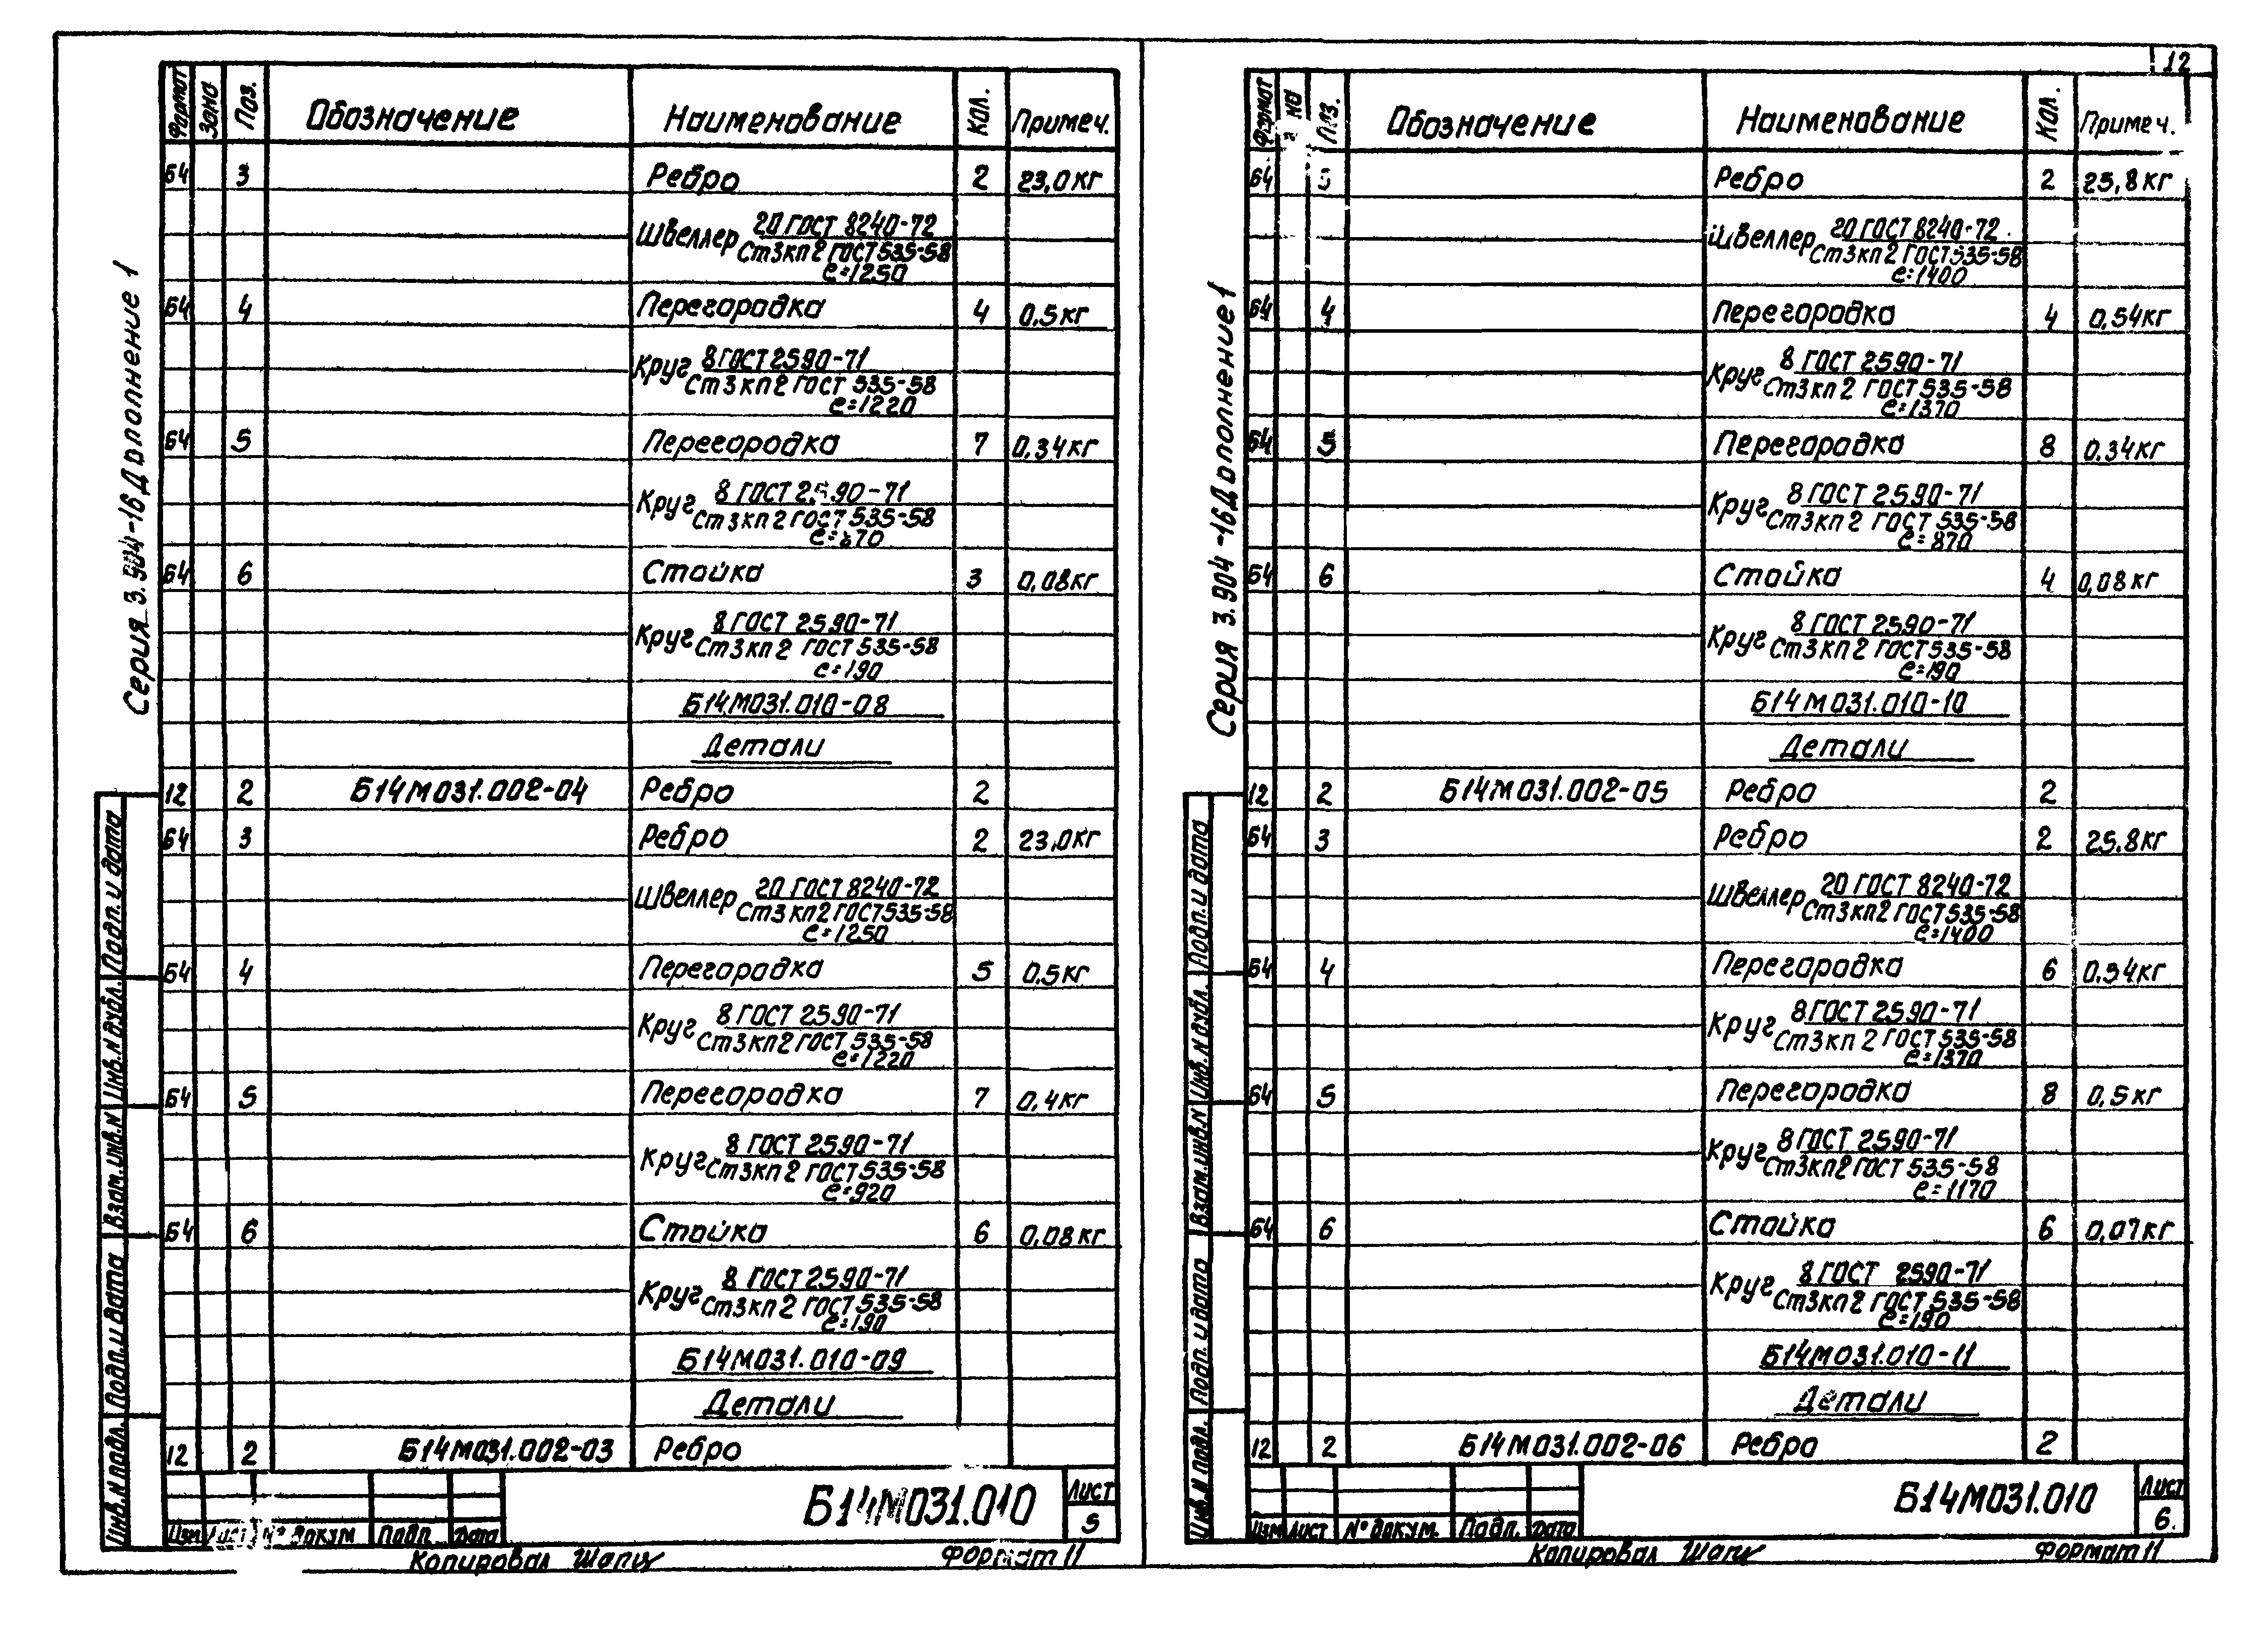 12
Серия 3.904-16 Дополнение 1
Формат Зона Поз. Обозначение Наименование Кол. Примеч.
Б4 3 Ребро 2 23,0кг
Швеллер 20 ГОСТ 8240-72
Ст3кп2 ГОСТ 535-58
ℓ=1250
Б4 4 Перегородка 4 0.5кг
Круг 8 ГОСТ 2590-71
Ст3кп2 ГОСТ 535-58
ℓ=1220
Б4 5 Перегородка 7 0,34кг
Круг 8 ГОСТ 2590-71
Ст3кп2 ГОСТ 535-58
ℓ=870
Б4 6 Стойка 3 0,08кг
Круг 8 ГОСТ 2590-71
Ст3кп2 ГОСТ 535-58
ℓ=190
Б14М031.010-08
Детали
12 2 Б14М031.002-04 Ребро 2
Б4 3 Ребро 2 23,0кг
Швеллер 20 ГОСТ 8240-72
Ст3кп2 ГОСТ 535-58
ℓ=1250
Б4 4 Перегородка 5 0.5кг
Круг 8 ГОСТ 2590-71
Ст3кп2 ГОСТ 535-58
ℓ=1220
Б4 5 Перегородка 7 0,4кг
Круг 8 ГОСТ 2590-71
Ст3кп2 ГОСТ 535-58
ℓ=920
Б4 6 Стойка 6 0,08кг
Круг 8 ГОСТ 2590-71
Ст3кп2 ГОСТ 535-58
ℓ=190
Б14М031.010-09
Детали
12 2 Б14М031.002-03 Ребро
Инв.N подл. Подп. и дата Взам.инв.N Инв.N дубл. Подп. и дата
Изм Лист № докум Подп. Дата
Б14М031.010
Лист
5
Копировал Формат 11
Серия 3.904-16 Дополнение 1
Формат Поз. Обозначение Наименование Кол. Примеч.
Б4 3 Ребро 2 25,8кг
Швеллер 20 ГОСТ 8240-72
Ст3кп2 ГОСТ 535-58
ℓ=1400
Б4 4 Перегородка 4 0,54кг
Круг 8 ГОСТ 2590-71
Ст3кп2 ГОСТ 535-58
ℓ=1370
Б4 5 Перегородка 8 0,34кг
Круг 8 ГОСТ 2590-71
Ст3кп2 ГОСТ 535-58
ℓ=870
Б4 6 Стойка 4 0,08кг
Круг 8 ГОСТ 2590-71
Ст3кп2 ГОСТ 535-58
ℓ=190
Б14М031.010-10
Детали
12 2 Б14М031.002-05 Ребро 2
Б4 3 Ребро 2 25.8кг
Швеллер 20 ГОСТ 8240-72
Ст3кп2 ГОСТ 535-58
ℓ=1400
Б4 4 Перегородка 6 0.54кг
Круг 8 ГОСТ 2590-71
Ст3кп2 ГОСТ 535-58
ℓ=1370
Б4 5 Перегородка 8 0,5кг
Круг 8 ГОСТ 2590-71
Ст3кп2 ГОСТ 535-58
ℓ=1170
Б4 6 Стойка 6 0,07кг
Круг 8 ГОСТ 2590-71
Ст3кп2 ГОСТ 535-58
ℓ=190
Б14М031.010-11
Детали
12 2 Б14М031.002-06 Ребро 2
Инв.N подл. Подп. и дата Взам.инв.N Инв.N дубл. Подп. и дата
Изм Лист № докум. Подп. Дата
Б14М031.010
Лист
6.
Копировал Формат 11